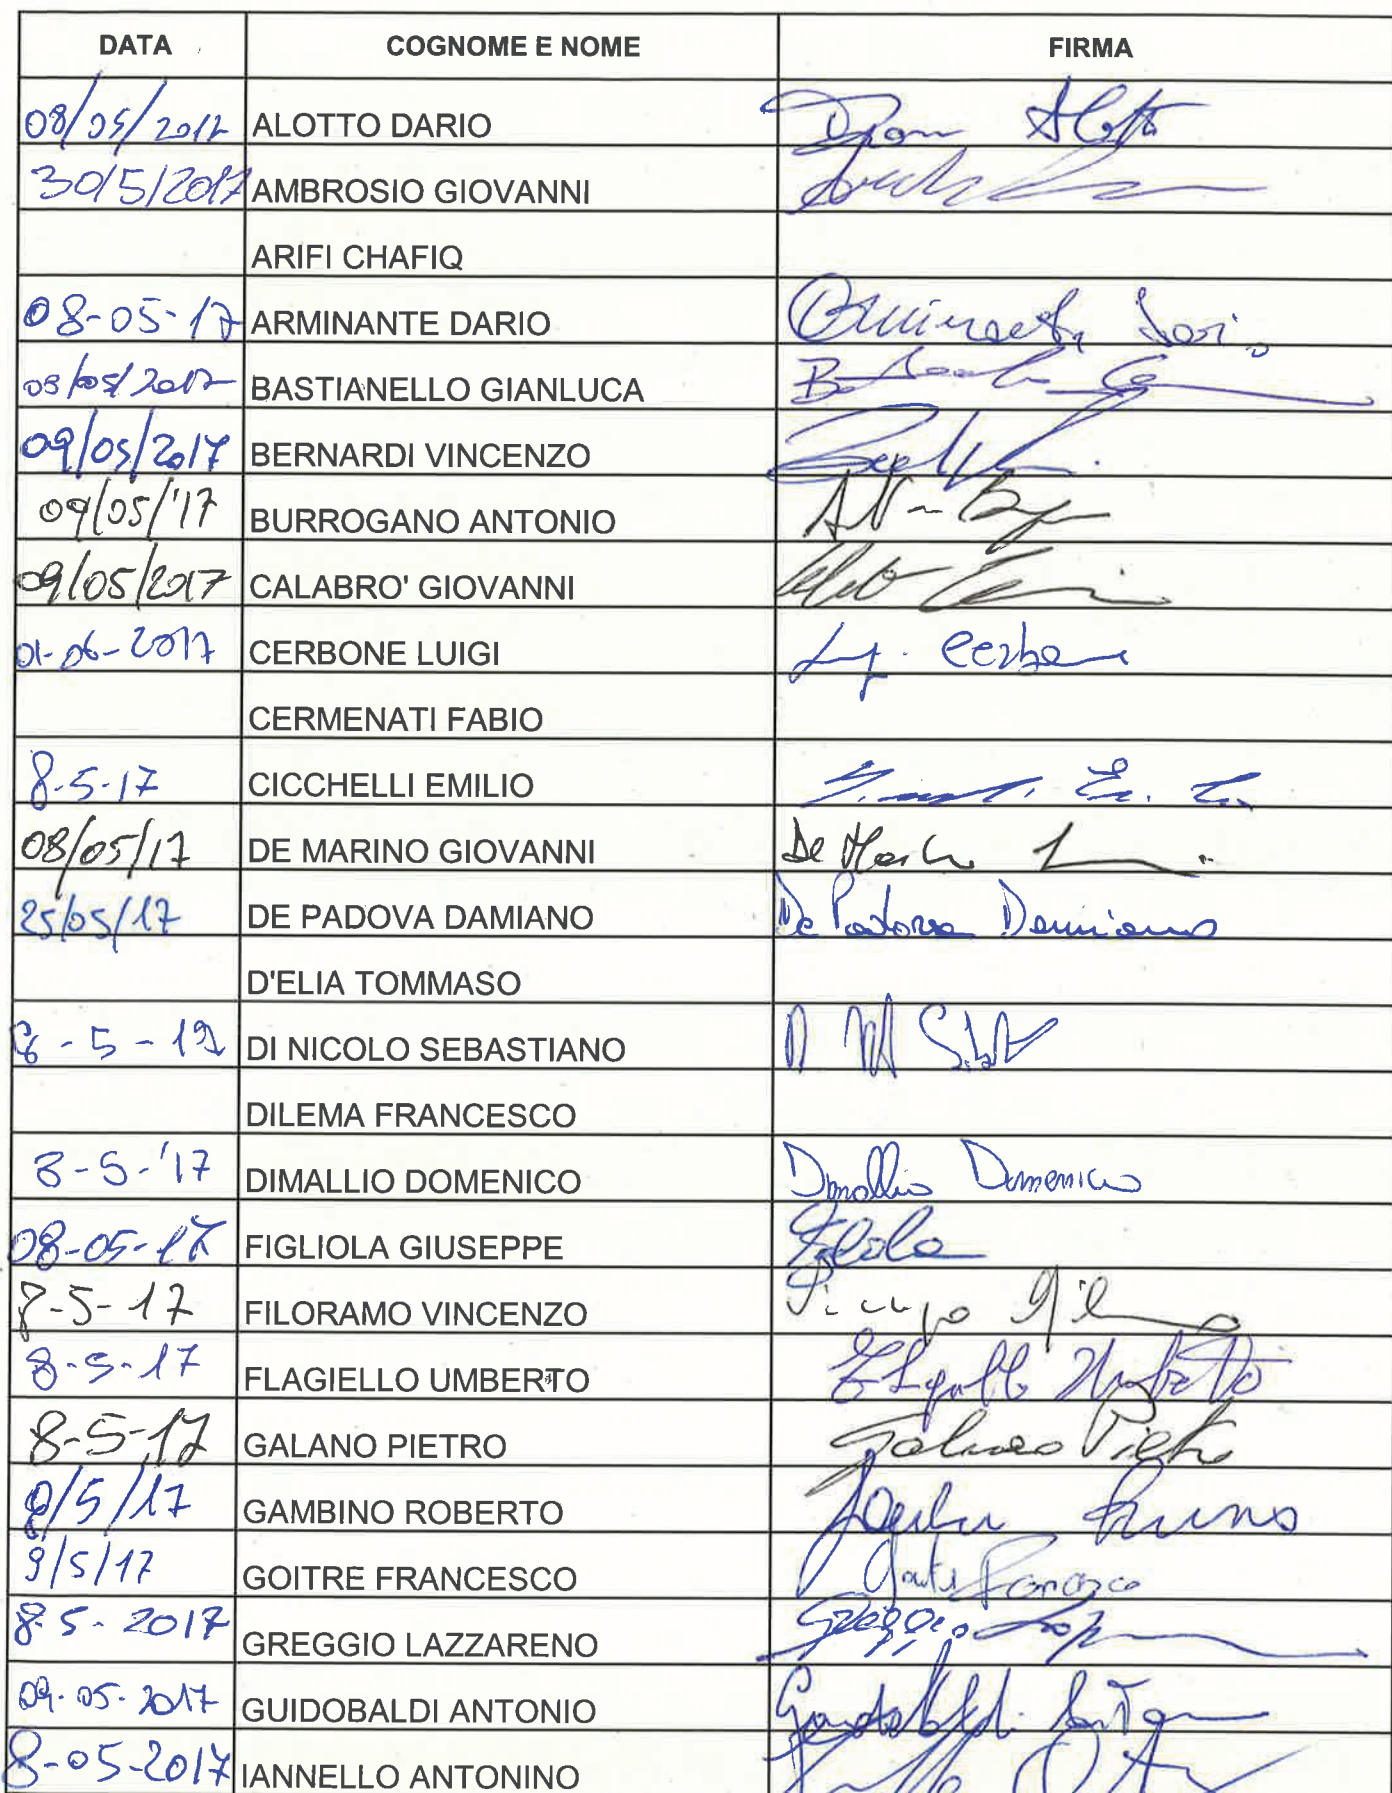 DATA COGNOME E NOME FIRMA
08/05/2017 ALOTTO DARIO
30/5/2017 AMBROSIO GIOVANNI
ARIFI CHAFIQ
08-05-17 ARMINANTE DARIO
BASTIANELLO GIANLUCA
09/05/2017 BERNARDI VINCENZO
09/05/'17 BURROGANO ANTONIO
09/05/2017 CALABRO' GIOVANNI
01-06-2017 CERBONE LUIGI
CERMENATI FABIO
8-5-17 CICCHELLI EMILIO
08/05/17 DE MARINO GIOVANNI De Marino
25/05/17 DE PADOVA DAMIANO De Padova Damiano
D'ELIA TOMMASO
DI NICOLO SEBASTIANO
DILEMA FRANCESCO
8-5-'17 DIMALLIO DOMENICO Dimallio Domenico
08-05-17 FIGLIOLA GIUSEPPE
8-5-17 FILORAMO VINCENZO
8-5-17 FLAGIELLO UMBERTO Umberto
8-5-17 GALANO PIETRO Galano Pietro
GAMBINO ROBERTO
9/5/17 GOITRE FRANCESCO Francesco
8-5-2017 GREGGIO LAZZARENO Greggio
09-05-2017 GUIDOBALDI ANTONIO Guidobaldi Antonio
8-05-2017 IANNELLO ANTONINO